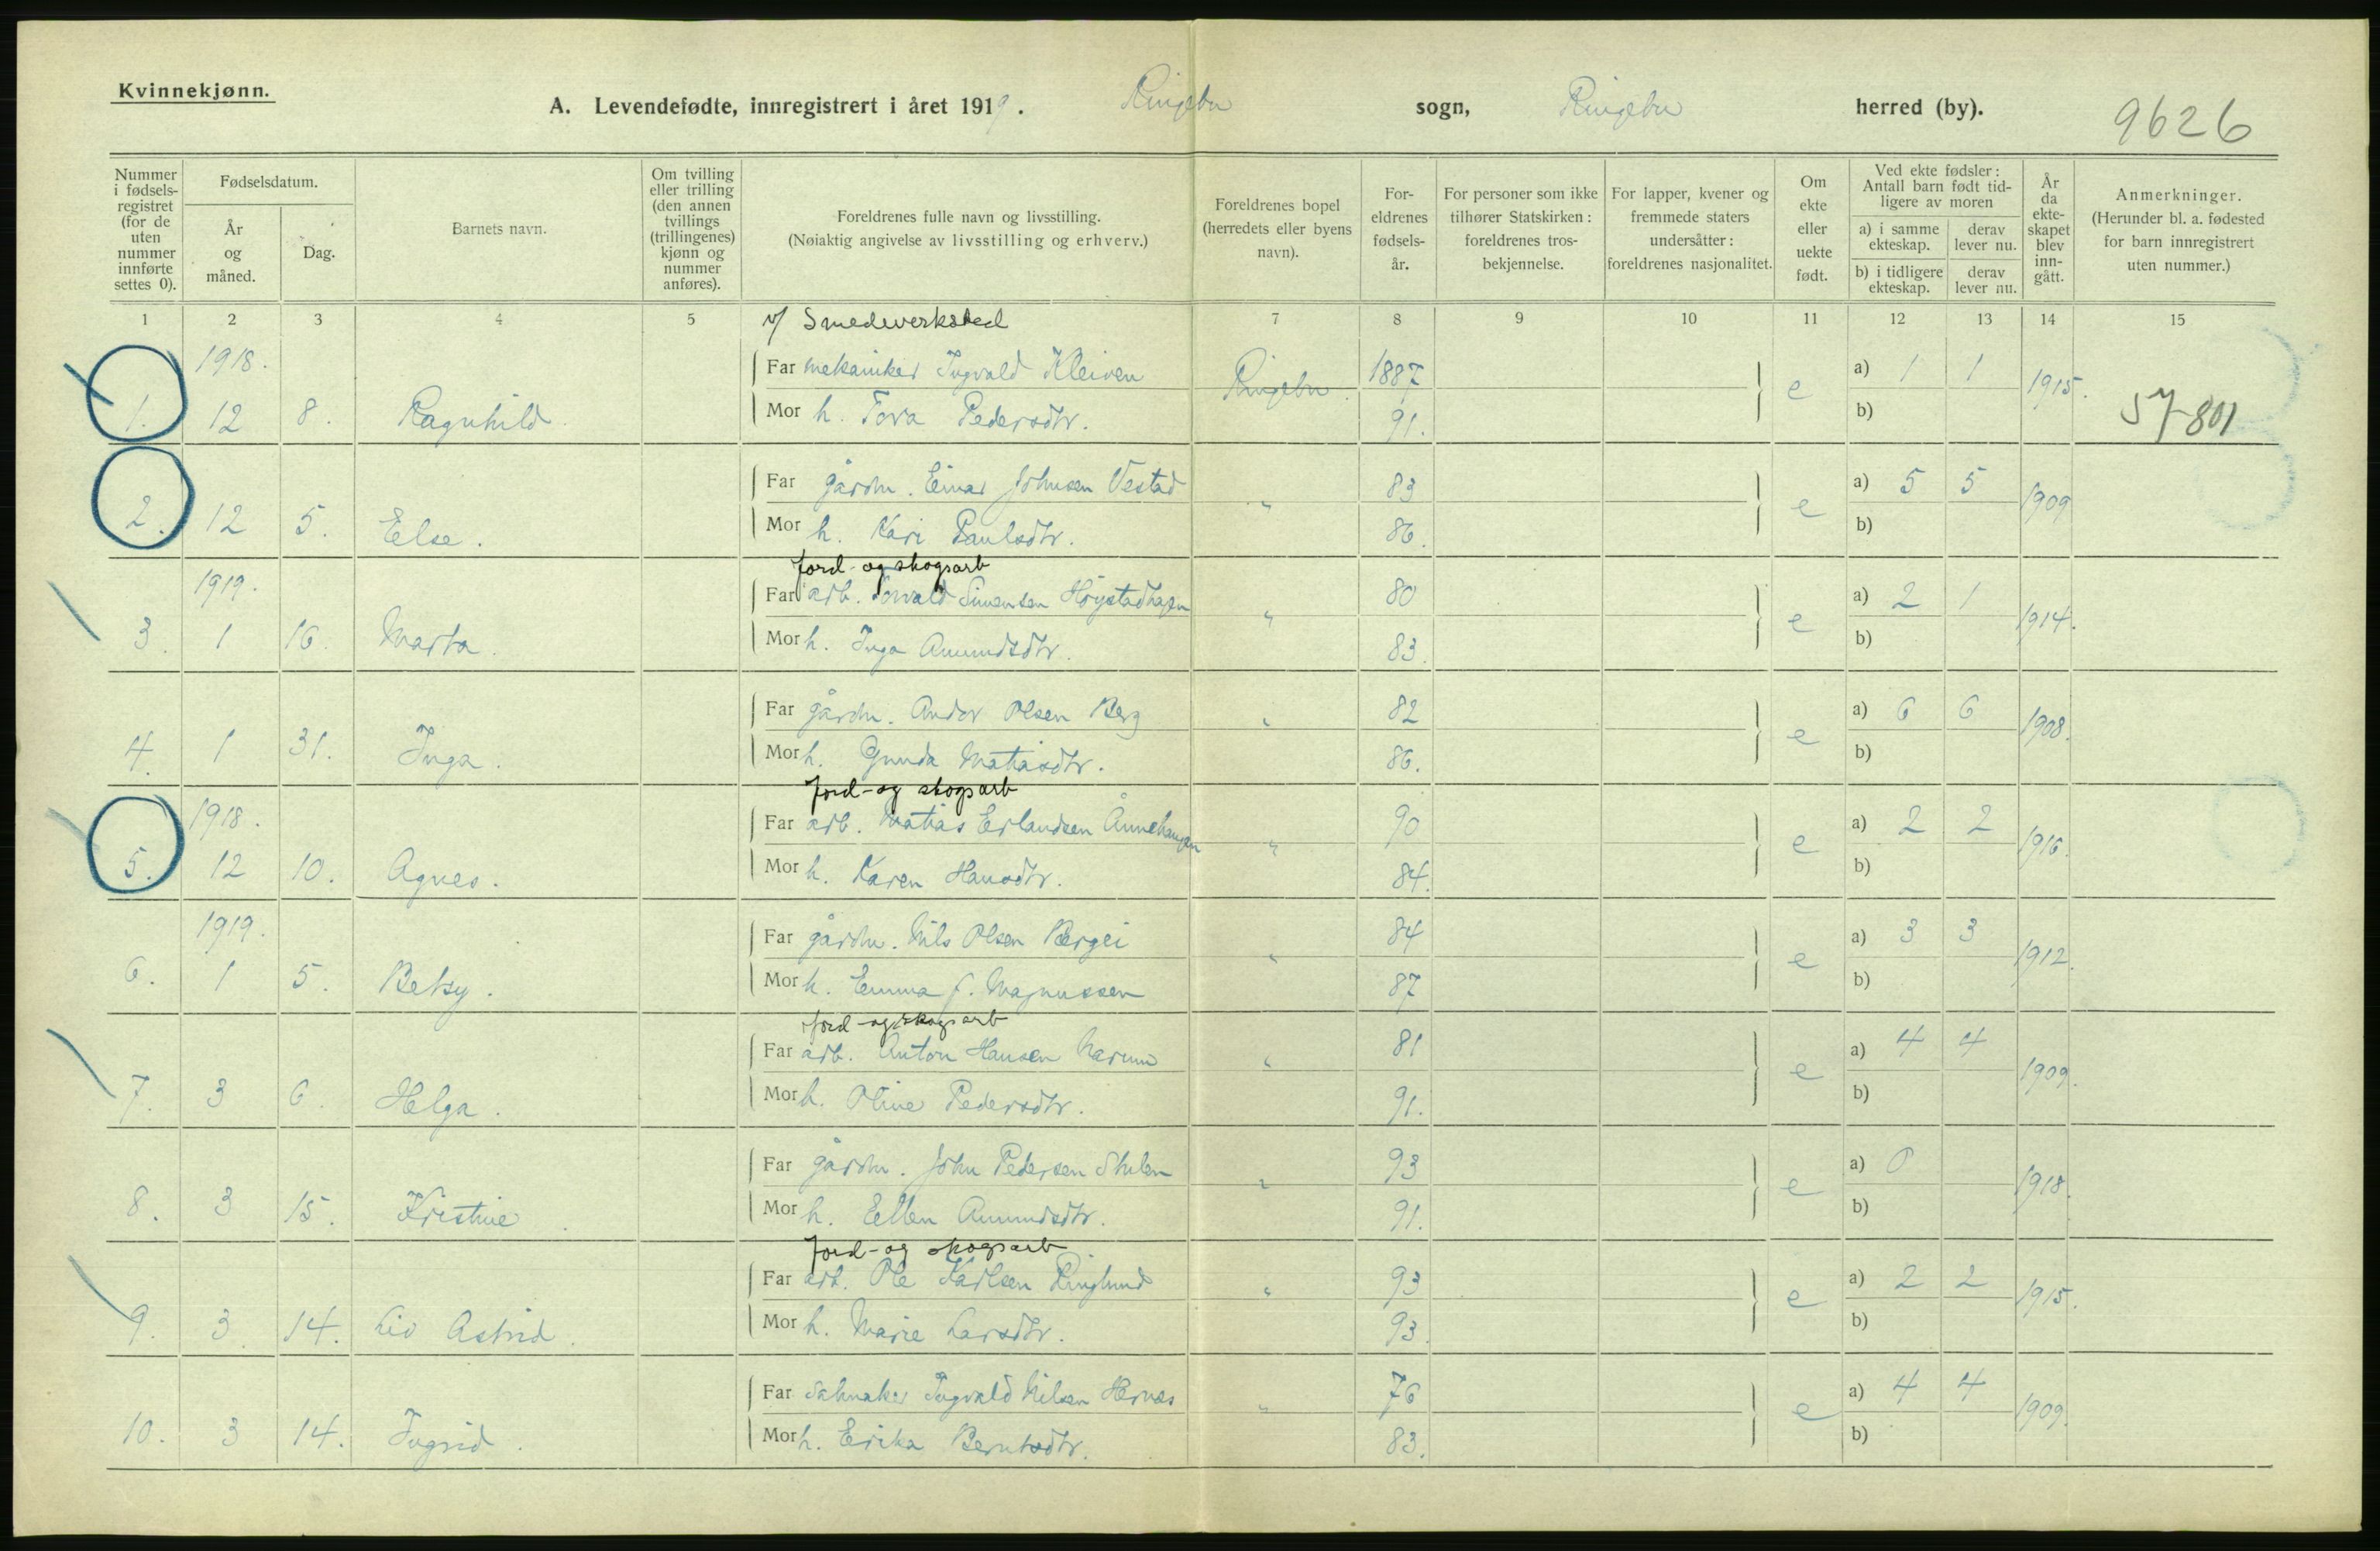 Kvinnekjønn.
A. Levendefødte, innregistrert i året 1919. Ringebu sogn, Ringebu herred (by).
9626
Nummer i fødsels-registret (for de uten nummer innførte settes 0).
Fødselsdatum.
År og måned.
Dag.
Barnets navn.
Om tvilling eller trilling (den annen tvillings (trillingenes) kjønn og nummer anføres).
Foreldrenes fulle navn og livsstilling.
(Nøiaktig angivelse av livsstilling og erhverv.)
Foreldrenes bopel (herredets eller byens navn).
For-eldrenes fødsels-år.
For personer som ikke tilhører Statskirken: foreldrenes tros-bekjennelse.
For lapper, kvener og fremmede staters undersåtter: foreldrenes nasjonalitet.
Om ekte eller uekte født.
Ved ekte fødsler: Antall barn født tid-ligere av moren
a) i samme ekteskap.
derav lever nu.
b) i tidligere ekteskap.
derav lever nu.
År da ekte-skapet blev inn-gått.
Anmerkninger.
(Herunder bl. a. fødested for barn innregistrert uten nummer.)
1 2 3 4 5 7 8 9 10 11 12 13 14 15
v/ Smedverksted
1918.
Far mekaniker Ingvald Kleiven Ringebu. 1887 e a) 1 1 1915.
1. 12 8. Ragnhild. Mor h. Tora Pedersdtr. 91. b) 57-801
Far gårdm. Einar Johnsen Vestad " 83 e a) 5 5 1909
2. 12 5. Else. Mor h. Kari Paulsdtr. 86. b)
jord- og skogsarb
1919.
Far arb. Torvald Simensen Høystadhagen " 80 e a) 2 1 1914.
3. 1 16. Marta. Mor h. Inga Amundsdtr. 83. b)
Far gårdm. Andor Olsen Berg " 82 e a) 6 6 1908.
4. 1 31. Inga. Mor h. Gunda Matiasdtr. 86. b)
Jord- og skogsarb
1918.
Far arb. Matias Erlandsen Ånnehaugen " 90 e a) 2 2 1916.
5. 12 10. Agnes. Mor h. Karen Hansdtr. 84. b)
1919.
Far gårdm. Nils Olsen Bergei " 84 e a) 3 3 1912.
6. 1 5. Betsy. Mor h. Emma f. Magnussen 87 b)
jord- og skogsarb
Far arb. Anton Hansen Narum " 81 e a) 4 4 1909.
7. 3 6. Helga. Mor h. Oline Pedersdtr. 91. b)
Far gårdm. John Pedersen " 93 e a) 0 1918.
8. 3 15. Kristine. Mor h. Ellen Amundsdtr. 91. b)
Jord- og skogsarb
Far arb. Ole Karlsen Ringlund " 93 e a) 2 2 1915.
9. 3 14. Liv Astrid. Mor h. Marie Larsdtr. 93. b)
Far Salmaker Ingvald Nilsen Hernes " 76 e a) 4 4 1909.
10. 3 14. Ingrid. Mor h. Erika Berntsdtr. 83. b)